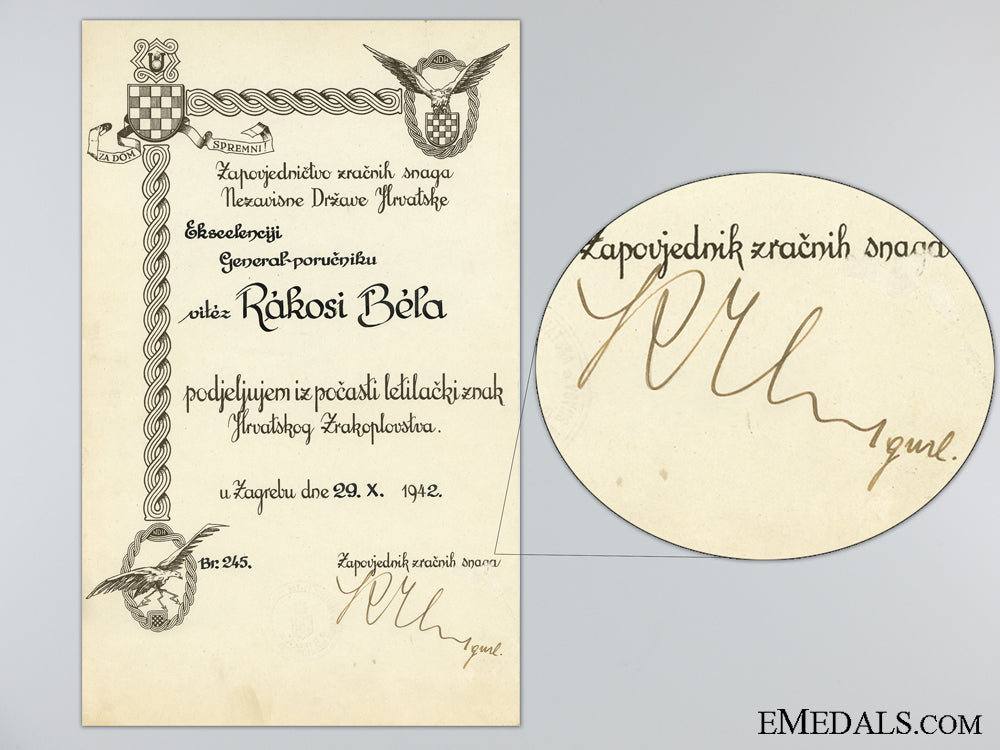 NDH
U
ZA DOM
SPREMNI!
Zapovjedničtvo zračnih snaga
Nezavisne Države Hrvatske
Ekscelenciji
General-poručniku
vitéz Rákosi Béla
podjeljujem iz počasti letilački znak
Hrvatskog Zrakoplovstva.
u Zagrebu dne 29. X. 1942.
NDH
Br. 245.
Zapovjednik zračnih snaga
Zapovjednik zračnih snaga
EMEDALS.COM